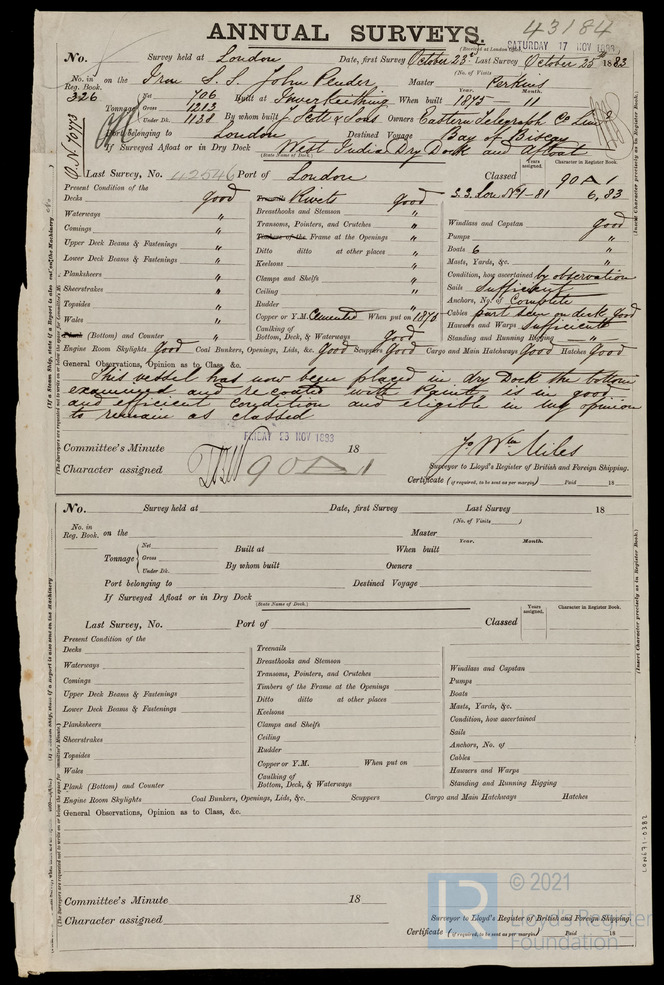 43184
ANNUAL SURVEYS.
(Received at London Office SATURDAY 17 NOV 1883
No. Survey held at London Date, first Survey October 23rd Last Survey October 25th 1883
(No. of Visits)
No. in Reg. Book. 326 on the Iron S.S. John Pender Master Perkins
Tonnage Net 706 Built at Inverkeithing When built Year. 1875 Month. 11
Gross 1213
Under Dk. 1138 By whom built J Scott & Sons Owners Eastern Telegraph Co Limd
Port belonging to London Destined Voyage Bay of Biscay
If Surveyed Afloat or in Dry Dock West India Dry Dock and Afloat
(State Name of Dock.)
Years assigned. Character in Register Book.
Last Survey, No. 42546 Port of London Classed 90 A 1
S.S. Lon. No1-81 6,83
Present Condition of the
Decks good
Waterways "
Comings "
Upper Deck Beams & Fastenings "
Lower Deck Beams & Fastenings "
Planksheers "
Sheerstrakes "
Topsides "
Wales "
Plank (Bottom) and Counter "
Treenails Rivets good
Breasthooks and Stemson "
Transoms, Pointers, and Crutches "
Timbers of the Frame at the Openings "
Ditto ditto at other places "
Keelsons "
Clamps and Shelfs "
Ceiling "
Rudder "
Copper or Y.M. Cemented When put on 1875
Caulking of Bottom, Deck, & Waterways Good
Windlass and Capstan good
Pumps "
Boats 6 "
Masts, Yards, &c. "
Condition, how ascertained by observation
Sails Sufficient
Anchors, No. of Complete
Cables part seen on deck good
Hawsers and Warps Sufficient
Standing and Running Rigging "
Engine Room Skylights Good Coal Bunkers, Openings, Lids, &c. Good Scuppers Good Cargo and Main Hatchways Good Hatches Good
General Observations, Opinion as to Class, &c.
This vessel has now been placed in dry Dock the bottom
examined and recoated with Paint, is in good
and efficient condition and eligible in my opinion
to remain as classed
FRIDAY 23 NOV 1883
Committee's Minute 18
Character assigned 90 A 1
Jo. Wm Miles
Surveyor to Lloyd's Register of British and Foreign Shipping.
Certificate (if required, to be sent as per margin) Paid 18
No. Survey held at Date, first Survey Last Survey 18
(No. of Visits)
No. in Reg. Book. on the Master
Tonnage Net Built at When built Year. Month.
Gross
Under Dk. By whom built Owners
Port belonging to Destined Voyage
If Surveyed Afloat or in Dry Dock
(State Name of Dock.)
Years assigned. Character in Register Book.
Last Survey, No. Port of Classed
Present Condition of the
Decks
Waterways
Comings
Upper Deck Beams & Fastenings
Lower Deck Beams & Fastenings
Planksheers
Sheerstrakes
Topsides
Wales
Plank (Bottom) and Counter
Treenails
Breasthooks and Stemson
Transoms, Pointers, and Crutches
Timbers of the Frame at the Openings
Ditto ditto at other places
Keelsons
Clamps and Shelfs
Ceiling
Rudder
Copper or Y.M. When put on
Caulking of Bottom, Deck, & Waterways
Windlass and Capstan
Pumps
Boats
Masts, Yards, &c.
Condition, how ascertained
Sails
Anchors, No. of
Cables
Hawsers and Warps
Standing and Running Rigging
Engine Room Skylights Coal Bunkers, Openings, Lids, &c. Scuppers Cargo and Main Hatchways Hatches
General Observations, Opinion as to Class, &c.
Committee's Minute 18
Character assigned
Surveyor to Lloyd's Register of British and Foreign Shipping.
Certificate (if required, to be sent as per margin) Paid 18
(Insert Character precisely as in Register Book.)
(Insert Character precisely as in Register Book.)
LR
© 2021
Lloyd's Register
Foundation